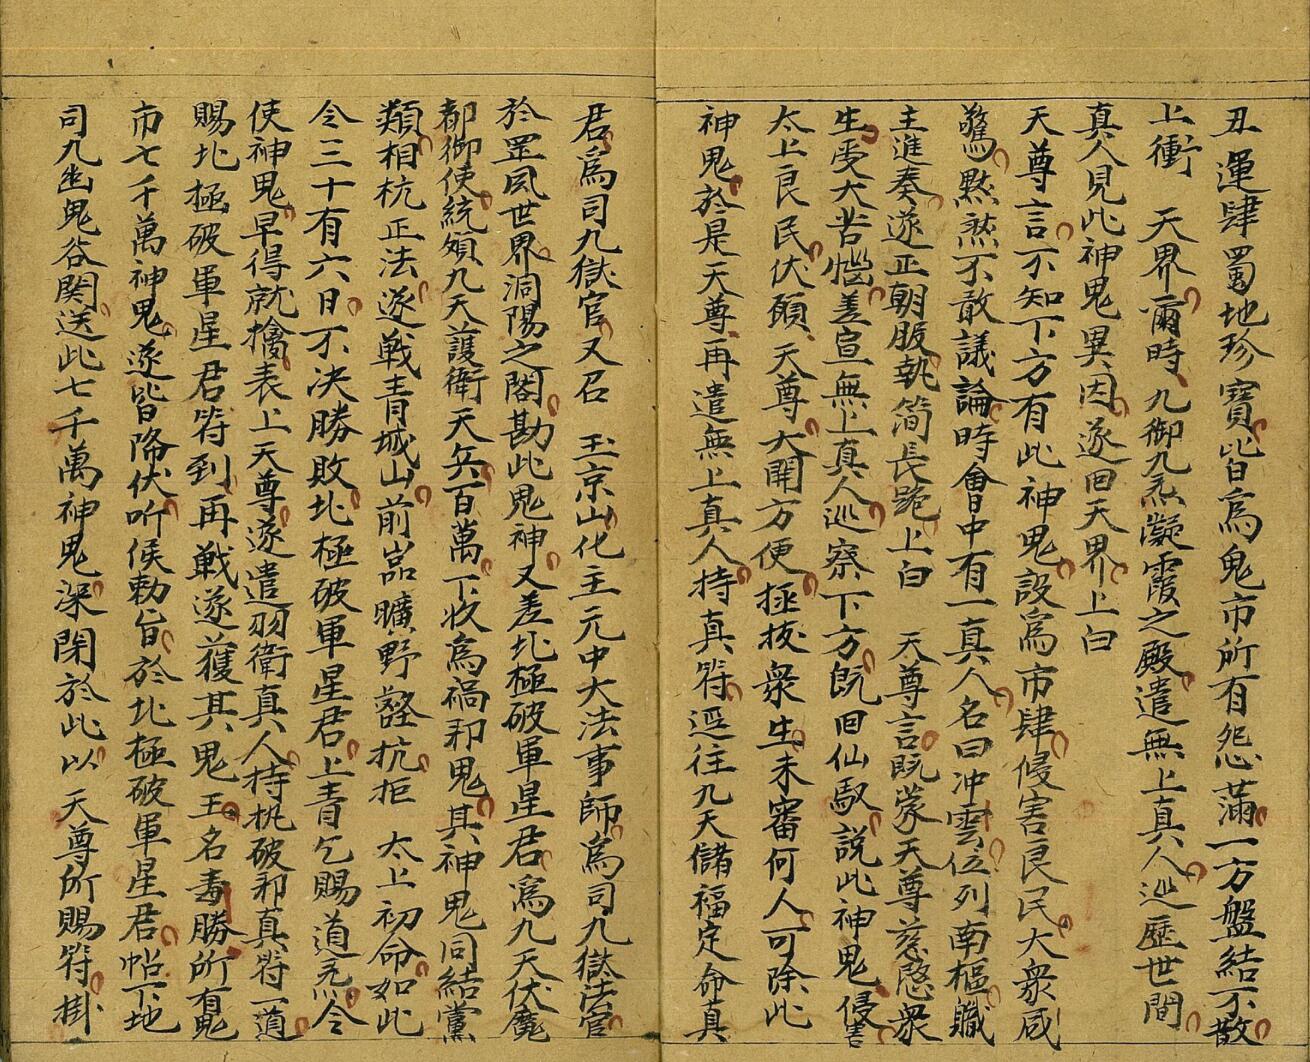 丑運肆蜀地珍寶皆爲鬼市所有怨滿一方盤結不散
上衝　天界爾時九御九炁凝霞之殿遣無上真人巡歷世間
真人見此神鬼異因遂回天界上白
天尊言不知下方有此神鬼設爲市肆侵害良民大衆咸
驚黙然不敢議論時會中有一真人名曰冲雲位列南樞職
主進奏遂正朝服執简長跪上白　天尊言既蒙天尊慈愍衆
生受大苦惱差宣無上真人巡察下方既回仙馭說此神鬼侵害
太上良民伏願　天尊大開方便拯拔衆生未審何人可除此
神鬼於是天尊再遣無上真人持真符逕往九天儲福定命真
君爲司九獄官又召　玉京山化主元中大法事師爲司九獄法官
於罡風世界洞陽之閣勘此鬼神又差北極破軍星君爲九天伏魔
都御使統領九天護衛天兵百萬下收爲禍邪鬼其神鬼同結黨
類相杭正法遂戰青城山前喦曠野壑抗拒　太上初命如此
令三十有六日不决勝敗北極破軍星君上青乞賜道炁令
使神鬼早得就擒表上天尊遂遣羽衛真人持執破邪真符一道
賜北極破軍星君符到再戰遂獲其鬼王名毒勝所有鬼
市七千萬神鬼遂皆降伏听候勅旨於北極破軍星君帖下地
司九幽鬼谷関送此七千萬神鬼深閉於此以　天尊所賜符掛